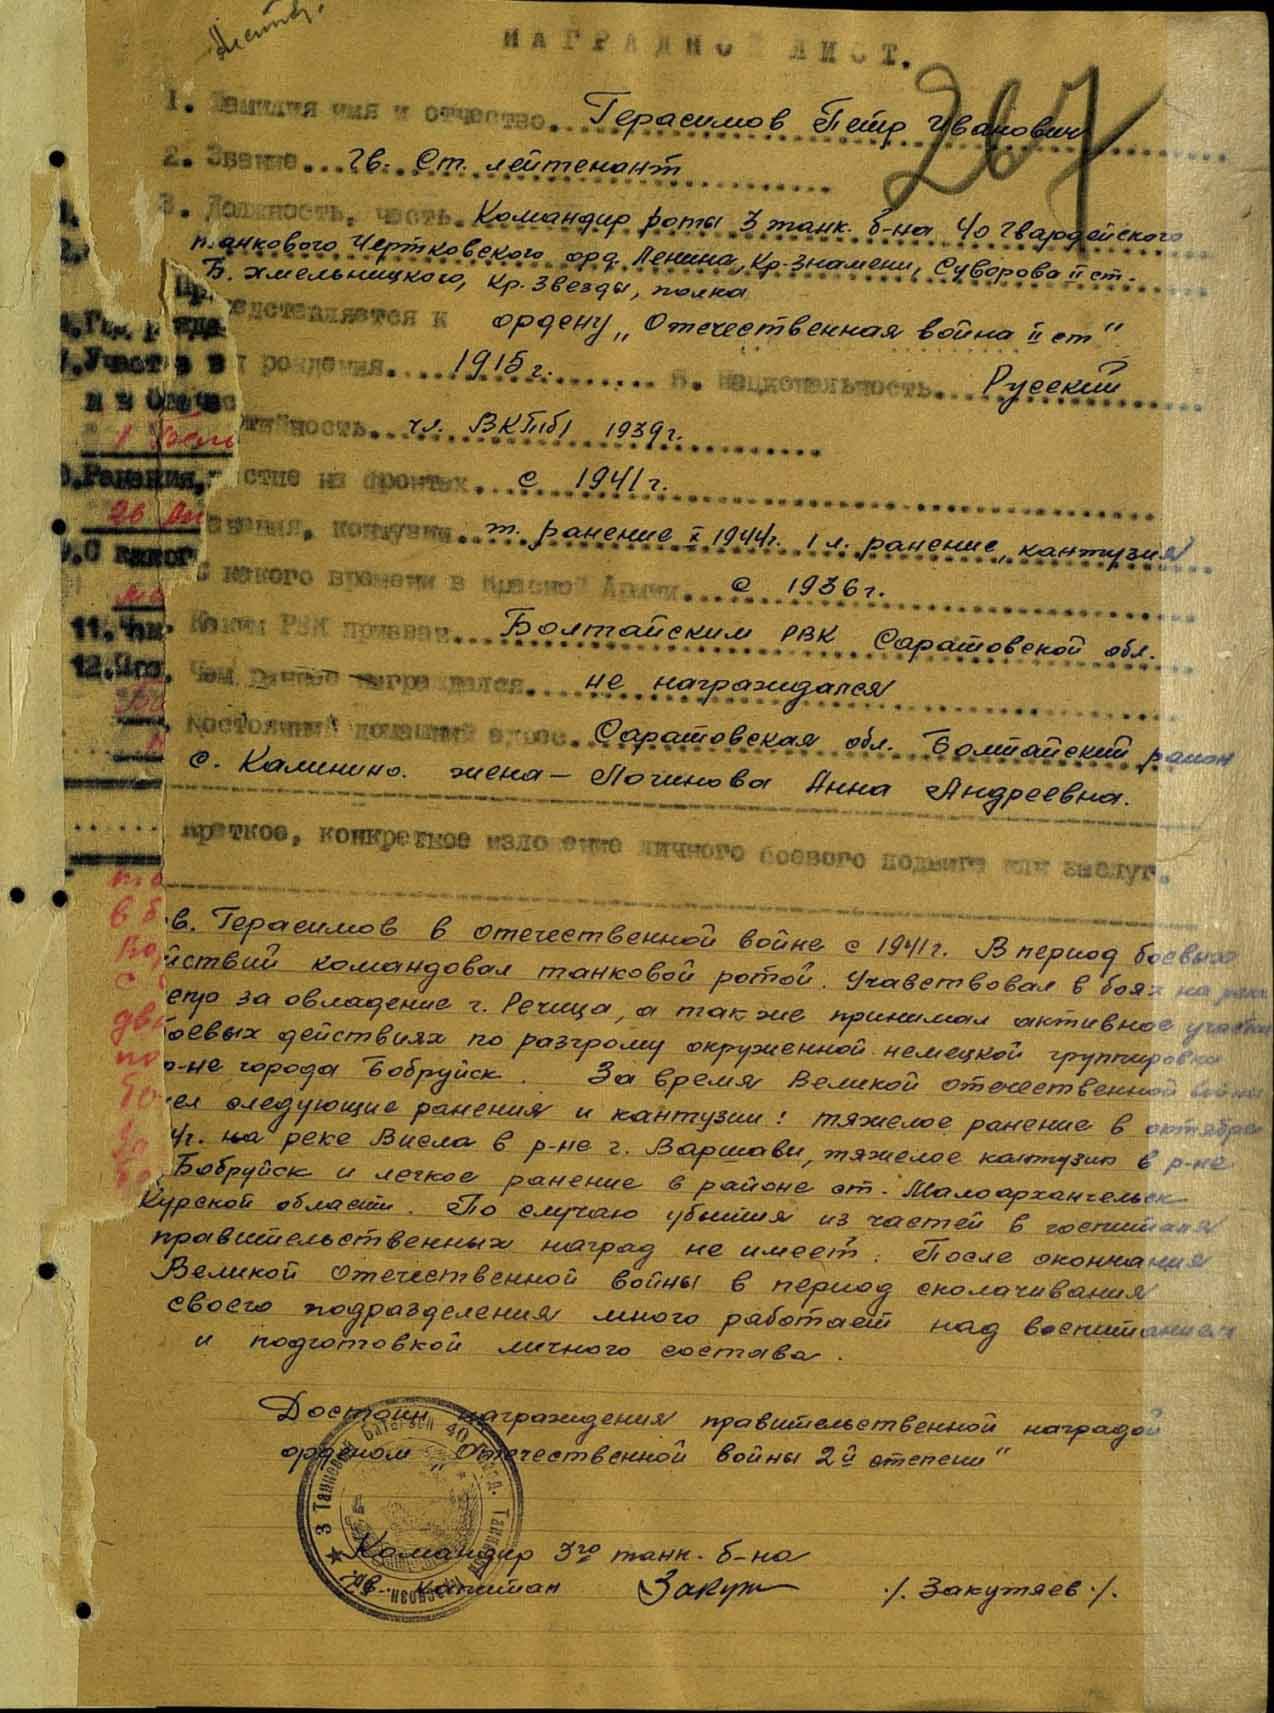 НАГРАДНОЙ ЛИСТ.
267
1. Фамилия имя и отчество. Герасимов Петр Иванович
2. Звание... гв. Ст. лейтенант
3. Должность, часть. Командир роты 3 танк. б-на 40 Гвардейского
танкового Чертковского орд. Ленина, Кр. Знамени, Суворова II ст.
Б. Хмельницкого, Кр. Звезды, полка
Представляется к ордену „Отечественная война II ст"
рождения. 1915 г. 5. Национальность. Русский
тийность. чл. ВКП(б) 1939 г.
стие на фронтах. с 1941 г.
нения, контузии. т. ранение X 1944 г. 1 л. ранение, кантузия
С какого времени в Красной Армии. с 1936 г.
Каким РВК призван. Болтайским РВК Саратовской обл.
Чем ранее награждался. не награждался
Постоянный домашний адрес. Саратовская обл. Болтайский район
с. Калинино. жена – Починова Анна Андреевна.
Краткое, конкретное изложение личного боевого подвига или заслуг.
в. Герасимов в отечественной войне с 1941 г. В период боевых
йствий командовал танковой ротой. Учавствовал в боях на реке
епр за овладение г. Речица, а также принимал активное участие
боевых действиях по разгрому окруженной немецкой группировки
р-не города Бобруйск. За время Великой отечественной войны
ел следующие ранения и кантузии: тяжелое ранение в октябре
4г. на реке Висла в р-не г. Варшавы, тяжелое кантузию в р-не
Бобруйск и легкое ранение в районе ст. Малоархангельск
Курской области. По случаю убытия из частей в госпиталя
правительственных наград не имеет. После окончания
Великой отечественной войны в период сколачивания
своего подразделения много работает над воспитанием
и подготовкой личного состава.
Достоин награждения правительственной наградой
орденом „Отечественной войны 2й степени"
3 Танковый Батальон 40 Гвард. Танков. Краснозн.
Командир 3го танк. б-на
гв. капитан Закут /. Закутяев ./.
4. Год рожде
7. Участ в
и в Отечес
8. Ранения,
26
9. С каког
11.
12.
дв
по